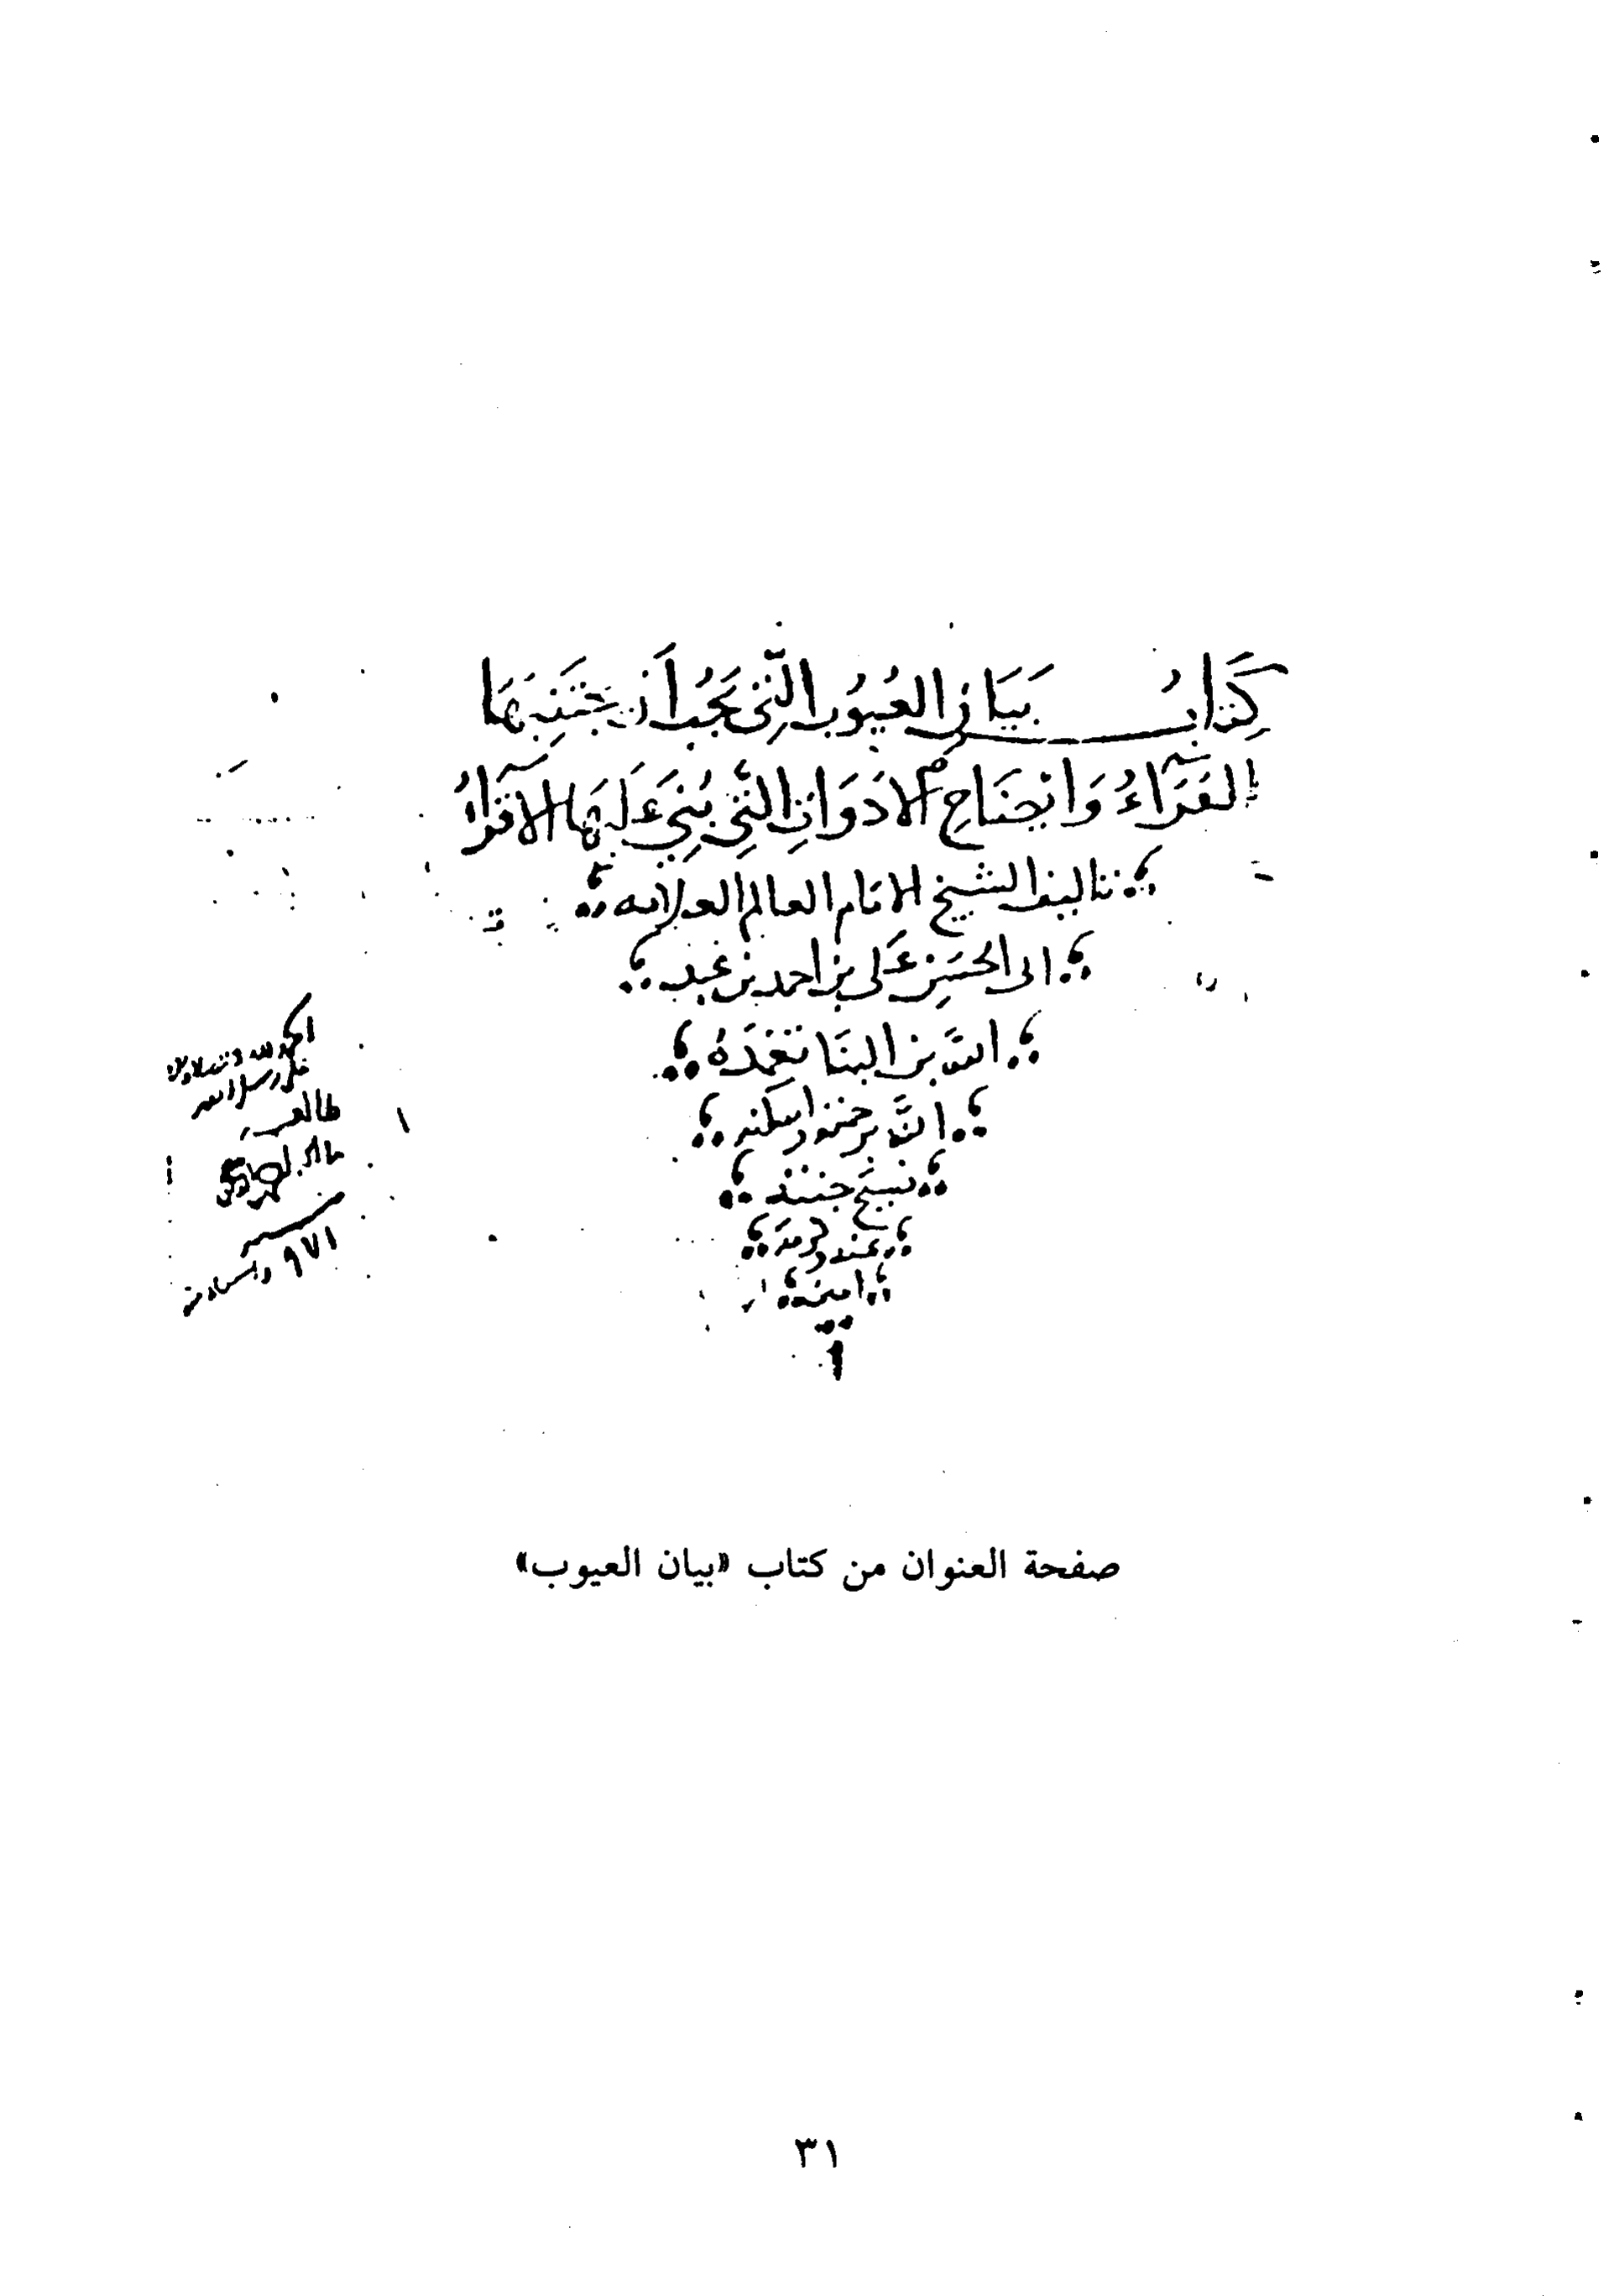 كِتَابُ بَيَانِ العُيُوبِ الَّتِي يَجِبُ أَن يَجْتَنِبَهَا
القُرَّاءُ وَايضَاحِ الادَوَاتِ الَّتِي بُنِيَ عَلَيْهَا الاقْرَاءُ
تاليف الشيخ الامام العالم العلامه
ابى الحَسَنِ عَلى بن احمد بن عَبد
اللَّه بن البنَا تغمَّدَهُ
اللَّه برحمته واسكنه
فسيح جنته
بمنه وكرمه
امين
الحمد لله
على رسول الله
طالعه
٩٧١
صفحة العنوان من كتاب «بيان العيوب»
٣١